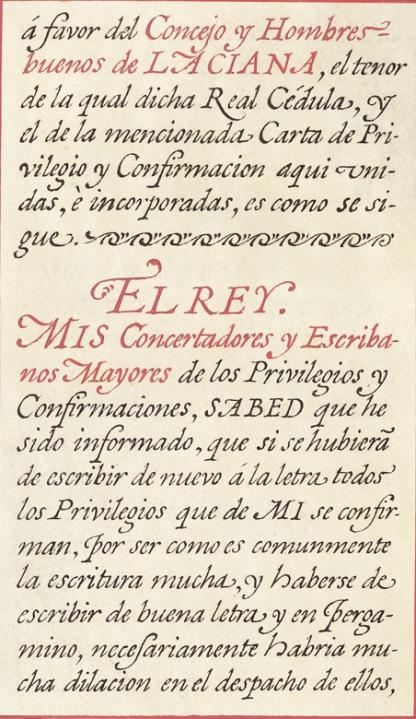 á favor del Concejo y Hombres-
buenos de LACIANA, el tenor
de la qual dicha Real Cédula, y
el de la mencionada Carta de Pri-
vilegio y Confirmacion aqui uni-
das, è incorporadas, es como se si-
gue.
EL REY.
MIS Concertadores y Escriba-
nos Mayores de los Privilegios y
Confirmaciones, SABED que he
sido informado, que si se hubierā
de escribir de nuevo á la letra todos
los Privilegios que de MI se confir-
man, por ser como es comunmente
la escritura mucha, y haberse de
escribir de buena letra y en perga-
mino, necesariamente habria mu-
cha dilacion en el despacho de ellos,